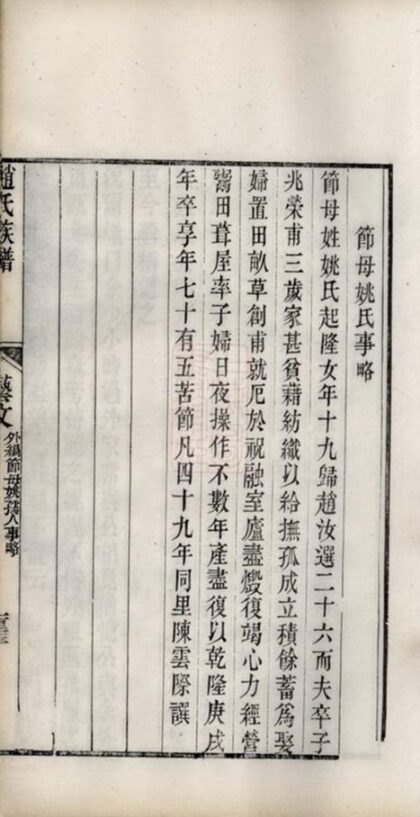 節母姚氏事略
節母姓姚氏起隆女年十九歸趙汝選二十六而夫卒子
兆榮甫三歲家甚貧藉紡織以給撫孤成立積餘蓄為娶
婦置田畝草創甫就厄於祝融室廬盡燬復竭心力經營
鬻田葺屋率子婦日夜操作不數年產盡復以乾隆庚戌
年卒享年七十有五苦節凡四十九年同里陳雲際譔
趙氏族譜
藝文
外編節母姚孺人事略